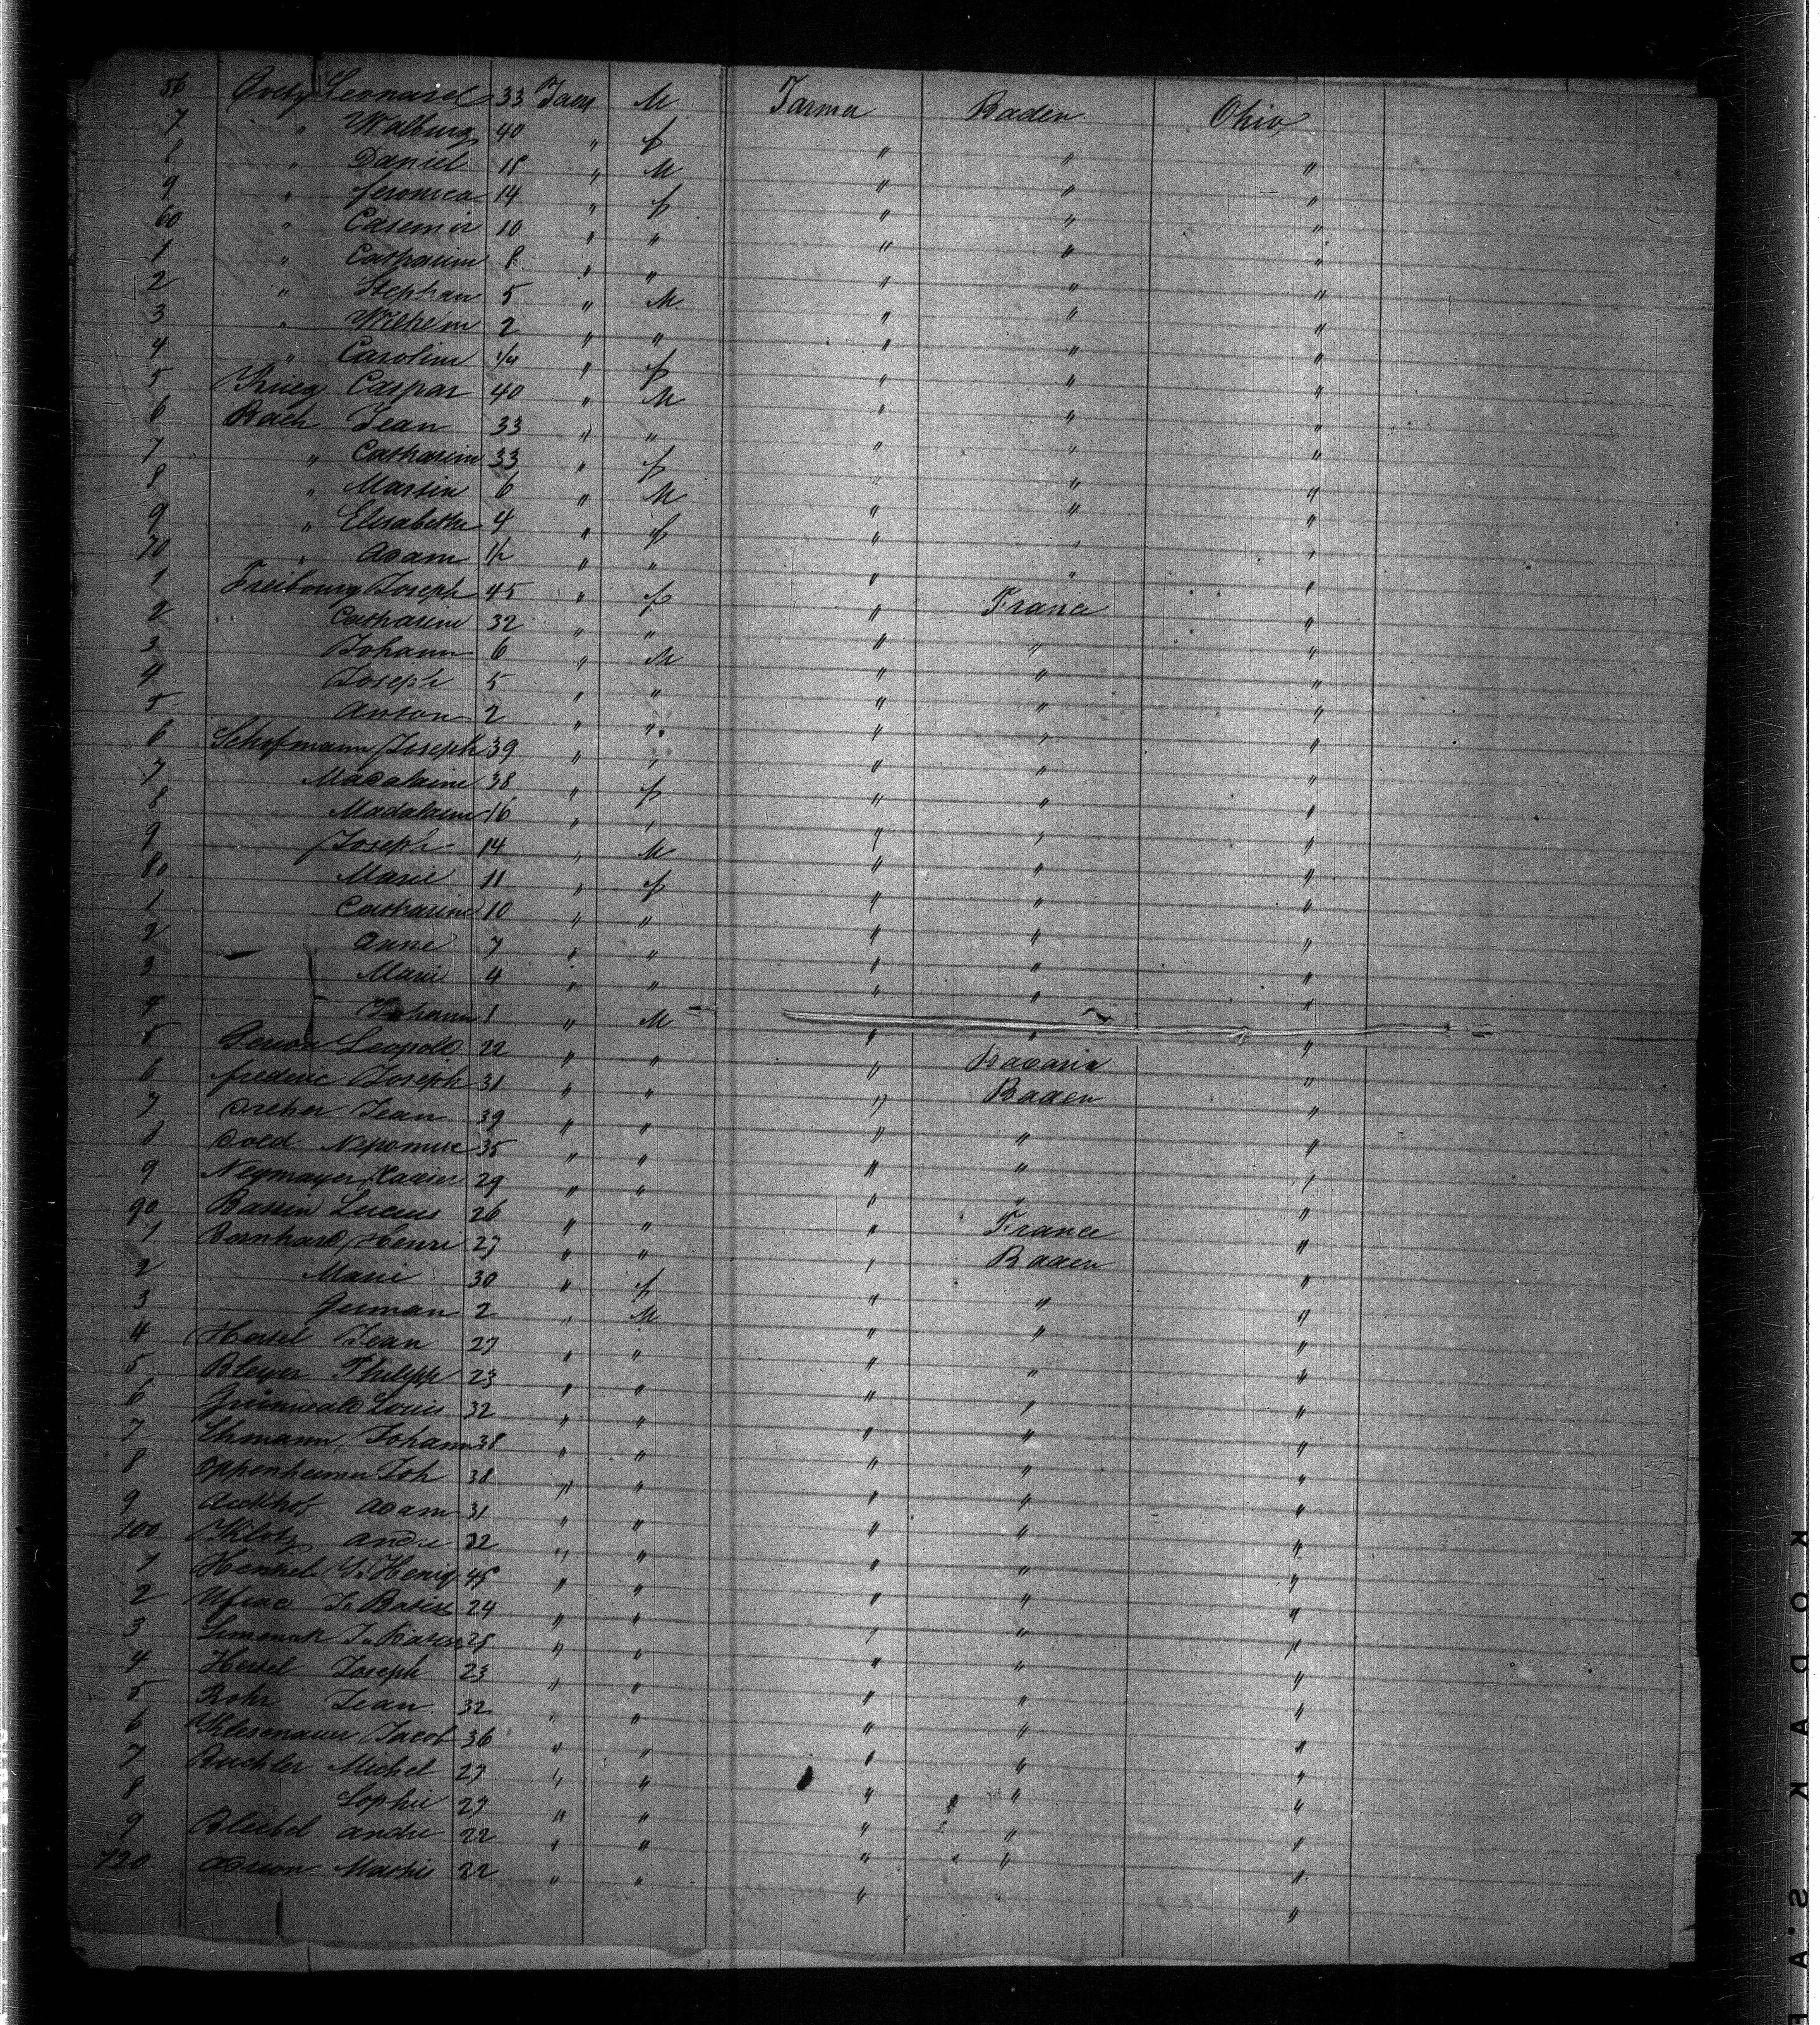 56 Goetz Leonard 33 Jaer M Farmer Baden Ohio
7 " Walburg 40 " f " " "
8 " Daniel 18 " M " " "
9 " Veronica 14 " f " " "
60 " Casemir 10 " " " " "
1 " Catharine 8 " " " " "
2 " Stephan 5 " M " " "
3 " Wilhelm 2 " " " " "
4 " Caroline 1/4 " f " " "
5 Krieg Caspar 40 " M " " "
6 Bach Jean 33 " " " " "
7 " Catharine 33 " f " " "
8 " Martin 6 " M " " "
9 " Elisabethe 4 " f " " "
70 " Adam 1/2 " " " " "
1 Freibourg Joseph 45 " f " France "
2 Catharine 32 " " " " "
3 Johann 6 " M " " "
4 Joseph 5 " " " " "
5 Anton 2 " " " " "
6 Schofmann Joseph 39 " " " " "
7 Madalaine 38 " f " " "
8 Madalaine 16 " " " " "
9 Joseph 14 " M " " "
80 Marie 11 " f " " "
1 Catharine 10 " " " " "
2 Anne 7 " " " " "
3 Marie 4 " " " " "
4 Johann 1 " M " " "
5 Leopold 22 " " " Bavaria "
6 frederic Joseph 31 " " " Baden "
7 Dreher Jean 39 " " " " "
8 Dold Nepomuc 35 " " " " "
9 Neymayer Xavier 29 " " " " "
90 Bassin Lucius 26 " " " France "
1 Bernhard Henri 27 " " " Baden "
2 Marie 30 " f " " "
3 German 2 " M " " "
4 Hertel Jean 27 " " " " "
5 Bleyer Philipp 23 " " " " "
6 Grünwald Louis 32 " " " " "
7 Ehmann Johann 38 " " " " "
8 Oppenheimer Joh 38 " " " " "
9 Adam 31 " " " " "
100 Klotz Andre 22 " " " " "
1 Henkel 45 " " " " "
2 24 " " " " "
3 " " " " "
4 Hertel Joseph 23 " " " " "
5 Rohr Jean 32 " " " " "
6 Jacob 36 " " " " "
7 Buchler Michel 27 " " " " "
8 Sophie 27 " " " " "
9 Andre 22 " " " " "
120 22 " " " " "